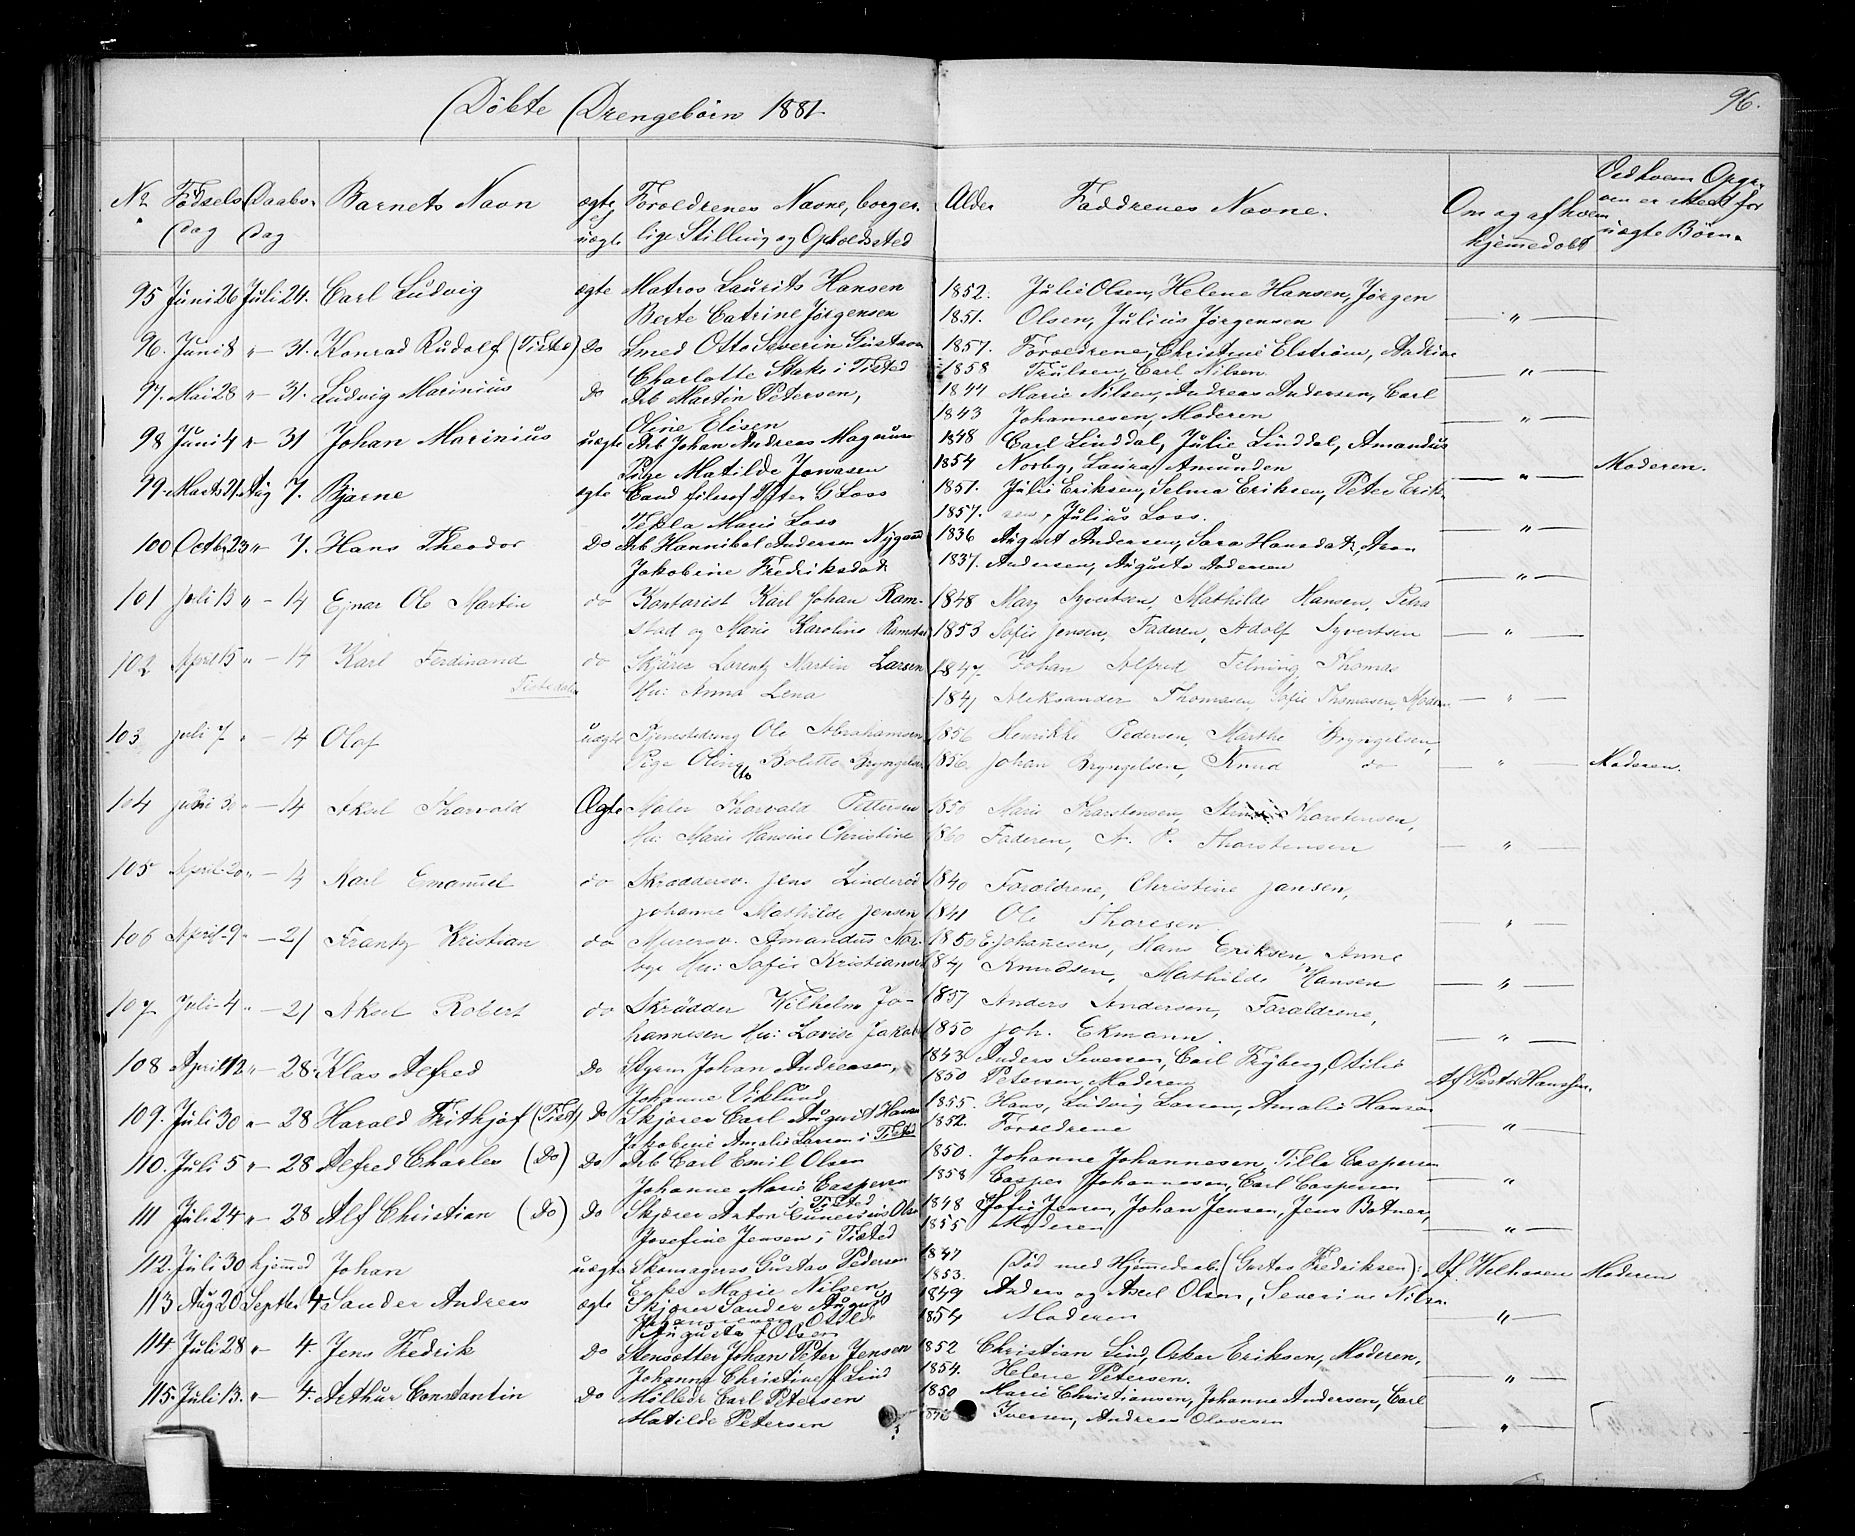 Døbte Drengebørn 1881.
96.
No Fødsels dag Daabs dag Barnets Navn ægte ell uægte Forældrenes Navne, borgerlige Stilling og Opholdsted Alder Faddrenes Navne. Om og af hvem hjemmedøbt Ved hvem Opgaven er skeed for uægte Børn.
95 Juni 26 Juli 24. Carl Ludvig ægte Matros Laurits Hansen 1852. Julie Olsen, Helene Hansen, Jørgen
Berte Catrine Jørgensen 1851. Olsen, Julius Jørgensen "
96. Juni 8 " - 31. Konrad Rudolf (Tisted) Do Smed Otto Severin Gustavsen 1857. Forældrene, Christine Elstrøm, Andrine
Charlotte i Tisted 1858 Trulsen, Carl Nilsen. "
97. Mai 28 " - 31. Ludvig Marinius Do Arb Martin Petersen, 1844 Marie Nilsen, Andreas Andersen, Carl
Oline Elisen 1843 Johannesen, Moderen "
98 Juni 4 " - 31 Johan Marinius uægte Arb Johan Andreas Magnus 1848 Carl Linddal, Julie Linddal, Amandus
Pige Matilde Jonasen 1854 Norby, Laura Amunden " Moderen.
99. Marts 21. Aug 7. Bjarne ægte Cand filosof Peter G Loss 1851. Julie Eriksen, Selma Eriksen, Peter Erik-
Tekla Marie Loss 1857. sen, Julius Loss. "
100 Octbr 23 " - 7. Hans Theodor Do Arb Hannibal Andersen Nygaard 1836 August Andersen, Sara Hansdat, Aron
Jakobine Fredriksdat 1837. Andersen, Augusta Andersen "
101 Juli 13 " - 14 Ejnar Ole Martin do Kontorist Karl Johan Ram- 1848 Mary Syvertsen, Mathilde Hansen, Petra
stad og Marie Karoline Ramstad 1853 Sofie Jensen, Faderen, Adolf Syvertsen "
102 April 15 " - 14 Karl Ferdinand do Skjærer Lorentz Martin Larsen 1847 Johan Alfred Thomas
Tistedalen Hu: Anna Lena 1841 Aleksander Thomasen, Sofie Thomasen, Moderen "
103 Juli 7 " - 14 Olaf uægte Tjenestedreng Ole Abrahamsen 1856 Henrikke Pedersen, Marthe Bryngelsen,
Pige Oline Bolette Bryngelsen 1856 Johan Bryngelsen, Knud do " Moderen.
104 Juni 30 " - 14 Aksel Thorvald Ægte Maler Thorvald Pettersen 1850 Marie Thorstensen, Thorstensen,
Hu: Marie Hansine Christine 1860 Faderen, A. P. Thorstensen "
105 April 20 " - 4 Karl Emanuel do Skræddersv. Jens Linderød 1840 Foraldrene, Christine Jansen,
Johanne Mathilde Jensen 1841 Ole Thoresen "
106 April 9 " - 21 Frantz Kristian do Murersv. Amandus Nor- 1850 E. Johanesen, Hans Eriksen, Anne
bye Hu: Sofie Kristiansen 1841 Knudsen, Mathilde Hansen "
107 Juli 4 " - 21 Aksel Robert do Skrædder Wilhelm Jo- 1857 Anders Andersen, Foraldrene,
hannesen Hu: Lovise Jakob 1850 Joh. Ekmann. "
108 April 12 " - 28 Klas Alfred Do Styrm Johan Andreasen, 1843 Anders Seversen, Carl Fryberg, Otilie
Johanne Viklund 1850 Petersen, Moderen Af Pastor
109. Juli 30 " - 28 Harald Frithjof (Tist) Do Skjærer Carl August Hansen 1855. Hans, Ludvig Larsen, Amalie Hansen
Jakobine Amalie Larsen i Tisted 1852. Forældrene "
110. Juli 5 " - 28 Alfred Charles (Do) Do Arb Carl Emil Olsen 1850. Johanne Johannesen, Tilla Caspersen
Johanne Marie Caspersen i Tisted 1858 Casper Johannesen, Carl Caspersen "
111 Juli 24 " - 28 Alf Christian (Do) Do Skjærer Anton Gunerius Olsen 1848 Sofie Jensen, Johan Jensen, Jens Botner,
Josefine Jensen i Tisted 1855 Moderen "
112. Juli 30 hjemmed Johan uægte Skomagersv Gustav Pedersen 1847 Død med Hjemmedaab. (Gustav Fredriksen) Af Welhaven Moderen
Enke Marie Nilsen 1853.
113 Aug 20 Septbr 4 Sander Andreas ægte Skjærer Sander August 1849 Anders og Axel Olsen, Severine Nilsen
Otilde Augusta f Olsen 1854 Moderen "
114. Juli 28 " - 4. Jens Fredrik Do Stensætter Johan Peter Jensen 1852 Christian Lind, Oskar Eriksen, Moderen,
Johanne Christine f Lind 1854. Helene Petersen. "
115. Juli 13. " - 4. Arthur Constantin Do Møller Carl Petersen 1850 Marie Christiansen, Johanne Andersen, Carl
Matilde Petersen Iversen, Andreas Olavesen "